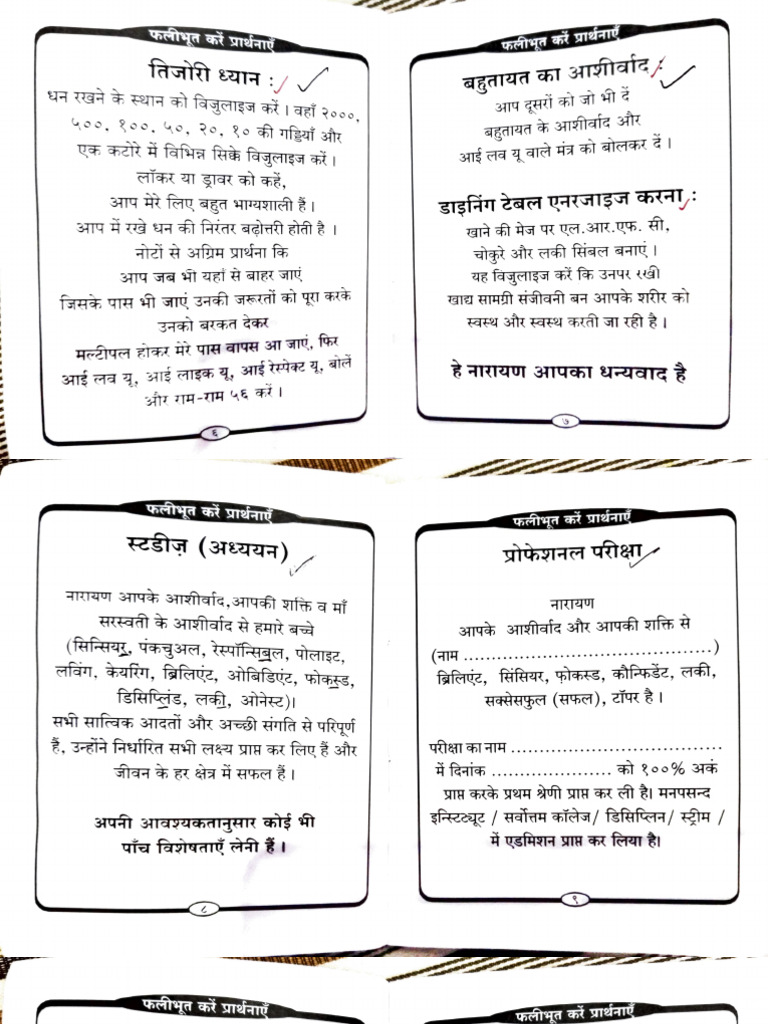 फलीभूत करें प्रार्थनाएँ
तिजोरी ध्यान :
धन रखने के स्थान को विजुलाइज करें । वहाँ २०००,
५००, १००, ५०, २०, १० की गड्डियाँ और
एक कटोरे में विभिन्न सिक्के विजुलाइज करें ।
लॉकर या ड्रावर को कहें,
आप मेरे लिए बहुत भाग्यशाली हैं ।
आप में रखे धन की निरंतर बढ़ोत्तरी होती है ।
नोटों से अग्रिम प्रार्थना कि
आप जब भी यहाँ से बाहर जाएं
जिसके पास भी जाएं उनकी जरूरतों को पूरा करके
उनको बरकत देकर
मल्टीपल होकर मेरे पास वापस आ जाएं, फिर
आई लव यू, आई लाइक यू, आई रेस्पेक्ट यू, बोलें
और राम-राम ५६ करें ।
६
फलीभूत करें प्रार्थनाएँ
बहुतायत का आशीर्वाद :
आप दूसरों को जो भी दें
बहुतायत के आशीर्वाद और
आई लव यू वाले मंत्र को बोलकर दें ।
डाइनिंग टेबल एनरजाइज करना :
खाने की मेज पर एल.आर.एफ. सी,
चोकुरे और लकी सिंबल बनाएं ।
यह विजुलाइज करें कि उनपर रखी
खाद्य सामग्री संजीवनी बन आपके शरीर को
स्वस्थ और स्वस्थ करती जा रही है ।
हे नारायण आपका धन्यवाद है
७
फलीभूत करें प्रार्थनाएँ
स्टडीज़ (अध्ययन)
नारायण आपके आशीर्वाद,आपकी शक्ति व माँ
सरस्वती के आशीर्वाद से हमारे बच्चे
(सिन्सियर, पंकचुअल, रेस्पॉन्सिबुल, पोलाइट,
लविंग, केयरिंग, ब्रिलिएंट, ओबिडिएंट, फोकस्ड,
डिसिप्लिंड, लकी, ओनेस्ट)।
सभी सात्विक आदतों और अच्छी संगति से परिपूर्ण
हैं, उन्होंने निर्धारित सभी लक्ष्य प्राप्त कर लिए हैं और
जीवन के हर क्षेत्र में सफल हैं ।
अपनी आवश्यकतानुसार कोई भी
पाँच विशेषताएँ लेनी हैं ।
८
फलीभूत करें प्रार्थनाएँ
प्रोफेशनल परीक्षा
नारायण
आपके आशीर्वाद और आपकी शक्ति से
(नाम ..........................................)
ब्रिलिएंट, सिंसियर, फ़ोकस्ड, कौन्फिडेंट, लकी,
सक्सेसफुल (सफल), टॉपर है ।
परीक्षा का नाम ....................................
में दिनांक .................... को १००% अकं
प्राप्त करके प्रथम श्रेणी प्राप्त कर ली है। मनपसन्द
इन्स्टिट्यूट / सर्वोत्तम कॉलेज/ डिसिप्लिन/ स्ट्रीम /
में एडमिशन प्राप्त कर लिया है।
९
फलीभूत करें प्रार्थनाएँ
फलीभूत करें प्रार्थनाएँ